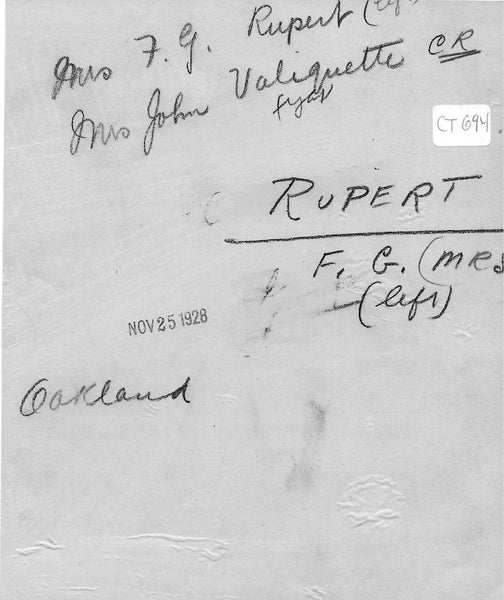 Mrs F. G. Rupert (left
Mrs John Valiquette CR
CT 694
RUPERT
F. G. (MRS
(left)
NOV 25 1928
Oakland